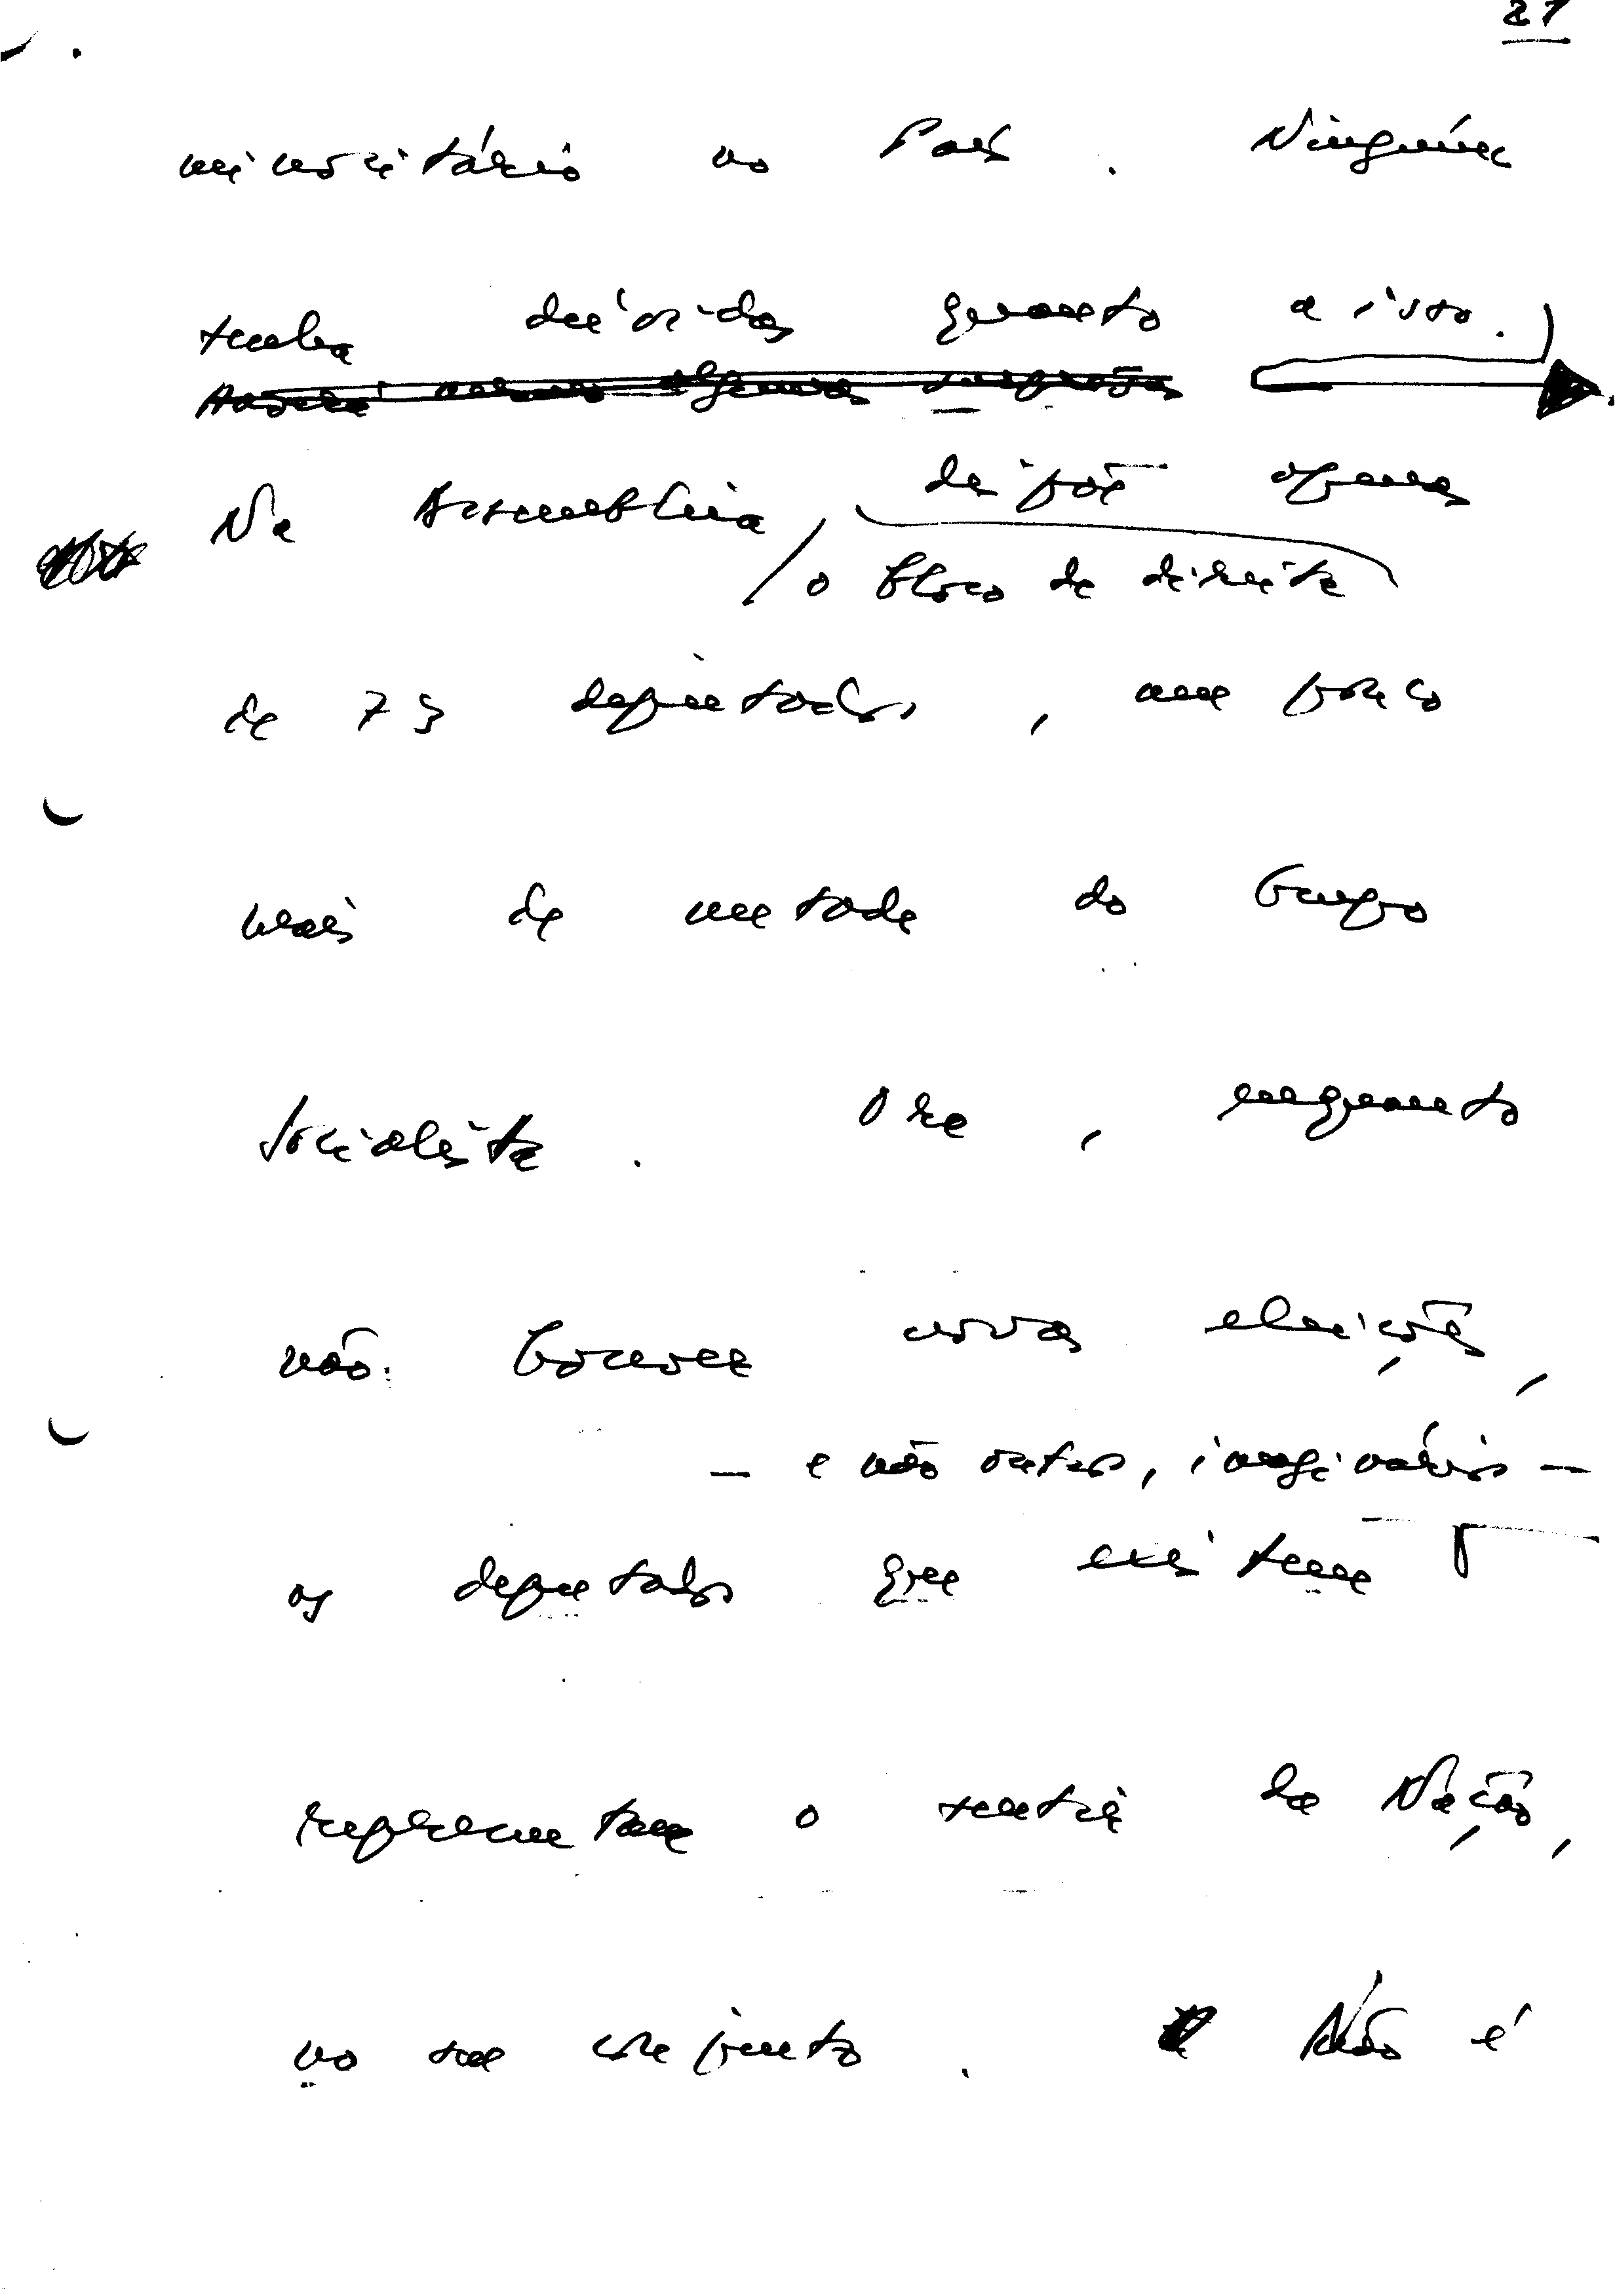 21
minoritário no País. Ninguém
tenha dúvidas quanto a isso.
Na Assembleia, dispõe apenas
/ o bloco de direita
de 73 deputados, um pouco
mais de metade do Grupo
Socialista. Ora, enquanto
não houver novas eleições,
— e não outros, imaginários —
os deputados que existem
representam o sentir da Nação,
no seu conjunto. Não é